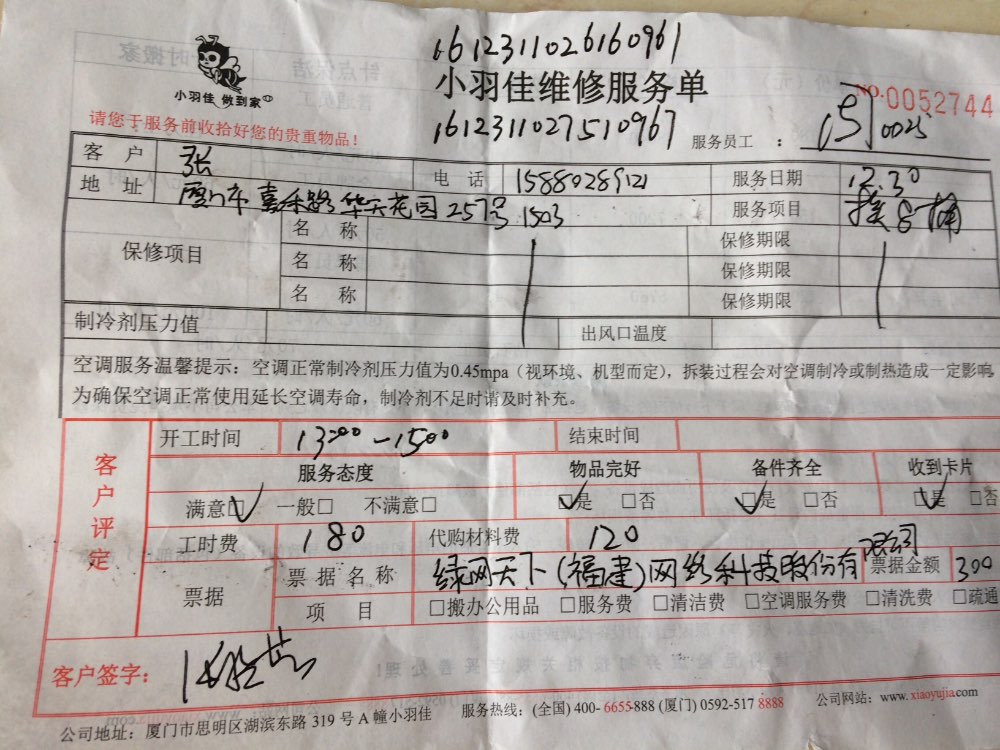 1612311026160961
小羽佳 做到家
小羽佳维修服务单
NO.0052744
请您于服务前收拾好您的贵重物品!
1612311027510967
服务员工 : 0025
客 户 张 电 话 15880289121 服务日期 12.30
地 址 厦门市嘉禾路华天花园257号1503 服务项目
保修项目 名 称 保修期限
名 称 保修期限
名 称 保修期限
制冷剂压力值 出风口温度
空调服务温馨提示：空调正常制冷剂压力值为0.45mpa（视环境、机型而定），拆装过程会对空调制冷或制热造成一定影响,
为确保空调正常使用延长空调寿命，制冷剂不足时请及时补充。
客户评定
开工时间 13:00-1500 结束时间
服务态度 物品完好 备件齐全 收到卡片
满意□ 一般□ 不满意□ □是 □否 □是 □否 □是 □否
工时费 180 代购材料费 120
票据 票据名称 绿网天下(福建)网络科技股份有限公司 票据金额 300
项 目 □搬办公用品 □服务费 □清洁费 □空调服务费 □清洗费 □疏通
客户签字：
公司地址：厦门市思明区湖滨东路 319 号 A 幢小羽佳 服务热线：(全国) 400- 6655-888 (厦门) 0592-517 8888 公司网站：www.xiaoyujia.com